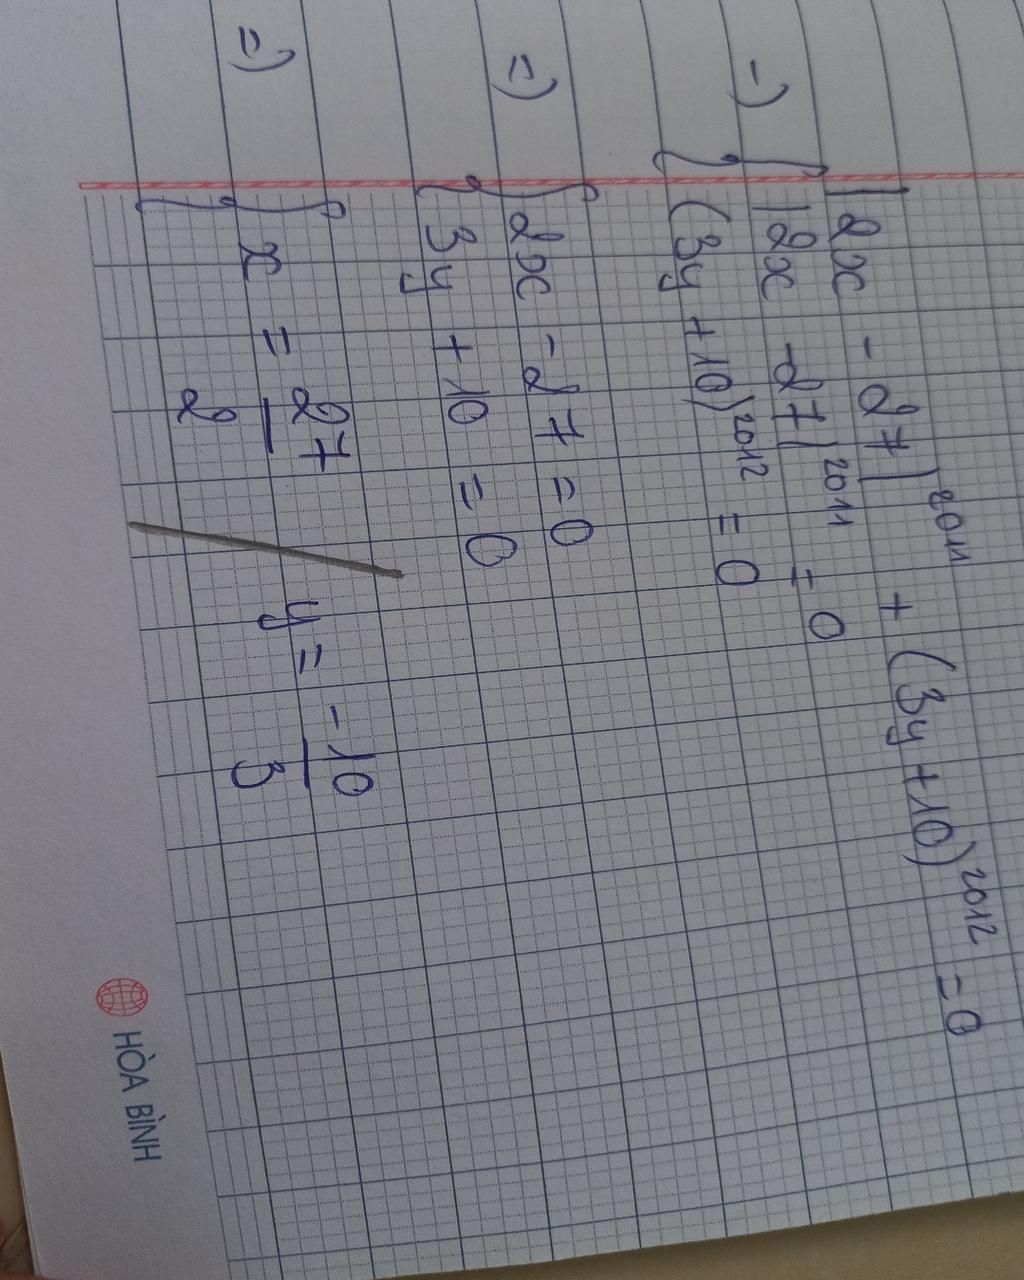 |2x - 27|²⁰¹¹ + (3y + 10)²⁰¹² = 0
-) { |2x - 27|²⁰¹¹ = 0
(3y + 10)²⁰¹² = 0
=) { 2x - 27 = 0
3y + 10 = 0
=) { x = 27/2 y = -10/3
HÒA BÌNH